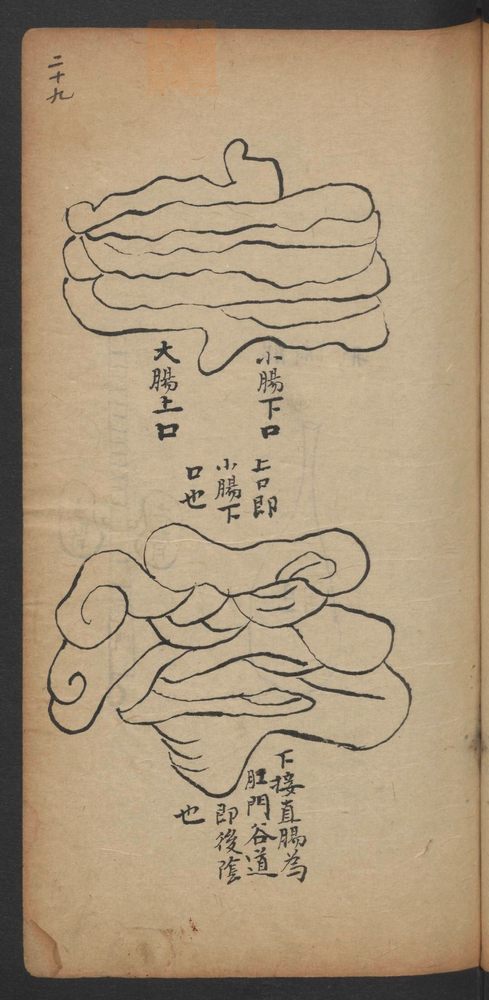 二十九
小腸下口
大腸上口
上口即
小腸下
口也
下接直腸為
肛門谷道
即後陰
也